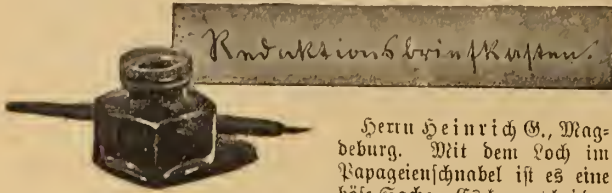 Redaktionsbriefkasten.
Herrn Heinrich G., Mag-
deburg. Mit dem Loch im
Papageienschnabel ist es eine